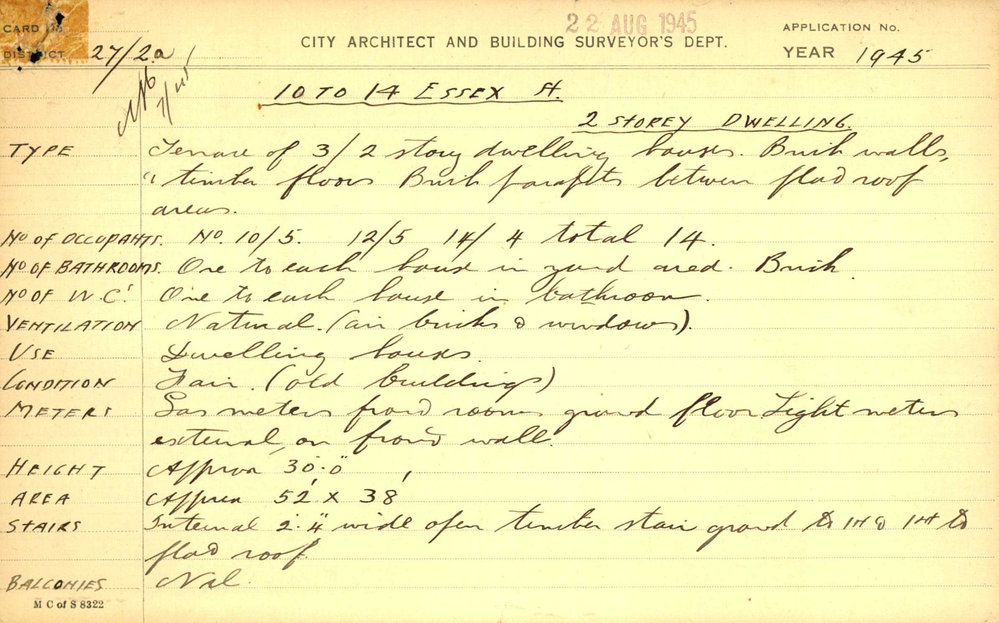 22 AUG 1945
CARD No
DISTRICT 27/2a
CITY ARCHITECT AND BUILDING SURVEYOR'S DEPT.
APPLICATION No.
YEAR 1945
7/45
10 TO 14 ESSEX St.
2 STOREY DWELLING.
TYPE Terrace of 3/2 story dwelling houses. Brick walls,
timber floors Brick parapets between flat roof
areas.
No OF OCCUPANTS. No. 10/5. 12/5 14/4 total 14.
No OF BATHROOMS. One to each house in yard area. Brick.
No OF W.C! One to each house in bathroom.
VENTILATION Natural. (air bricks & windows).
USE Dwelling houses.
CONDITION Fair. (old buildings)
METERS Gas meters front rooms ground floor Light meters
external, on front wall.
HEIGHT Approx 30'.0"
AREA Approx 52' x 38'
STAIRS Internal 2'.4" wide open timber stair ground to 1st & 1st to
flat roof.
BALCONIES Nil.
M C of S 8322